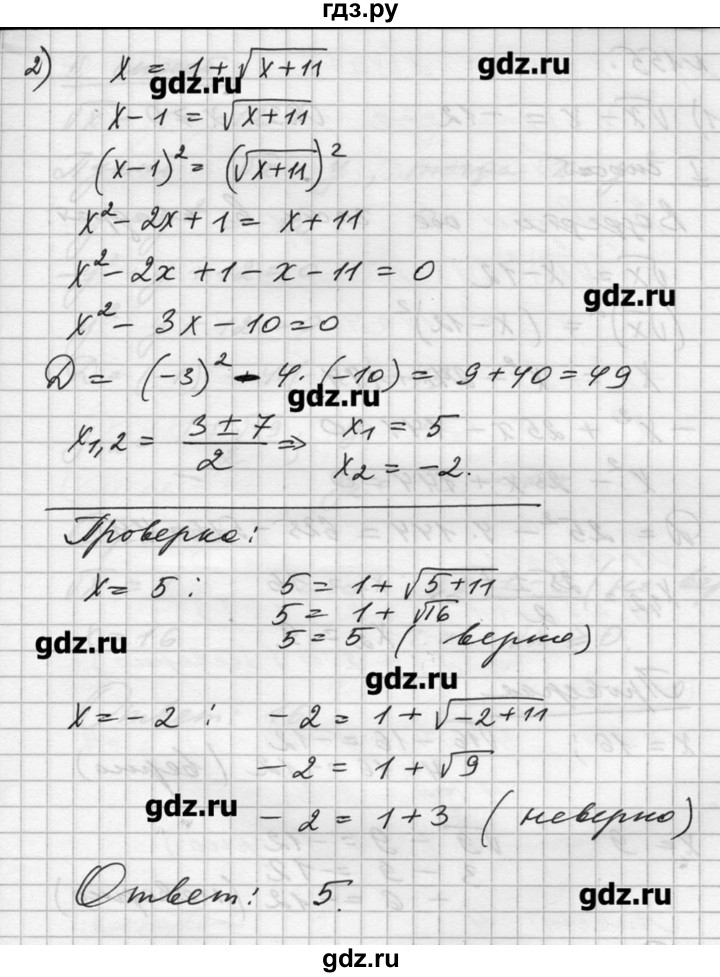 гдз.ру
2) x = 1 + √(x+11)
gdz.ru
gdz.ru
x - 1 = √(x+11)
(x-1)² = (√(x+11))²
x² - 2x + 1 = x + 11
x² - 2x + 1 - x - 11 = 0
gdz.ru
x² - 3x - 10 = 0
D = (-3)² - 4·(-10) = 9 + 40 = 49
gdz.ru
x₁,₂ = (3 ± 7)/2 ⇒ x₁ = 5
x₂ = -2.
Проверка:
x = 5 : 5 = 1 + √(5+11)
5 = 1 + √16
5 = 5 (верно)
gdz.ru
gdz.ru
x = -2 : -2 = 1 + √(-2+11)
-2 = 1 + √9
gdz.ru
-2 = 1 + 3 (неверно)
Ответ: 5.
gdz.ru
gdz.ru